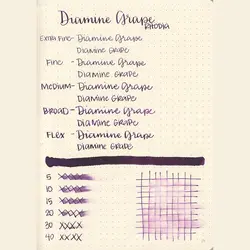 Diamine Grape
RHODIA
EXTRA FINE - Diamine Grape
DIAMINE GRAPE
FINE - Diamine Grape
DIAMINE GRAPE
MEDIUM - Diamine Grape
DIAMINE GRAPE
BROAD - Diamine Grape
DIAMINE GRAPE
FLEX - Diamine Grape
DIAMINE GRAPE
5 XXXXX
10 XXXX
15 XXXX
20 XXXX
30 XXXX
40 XXXX